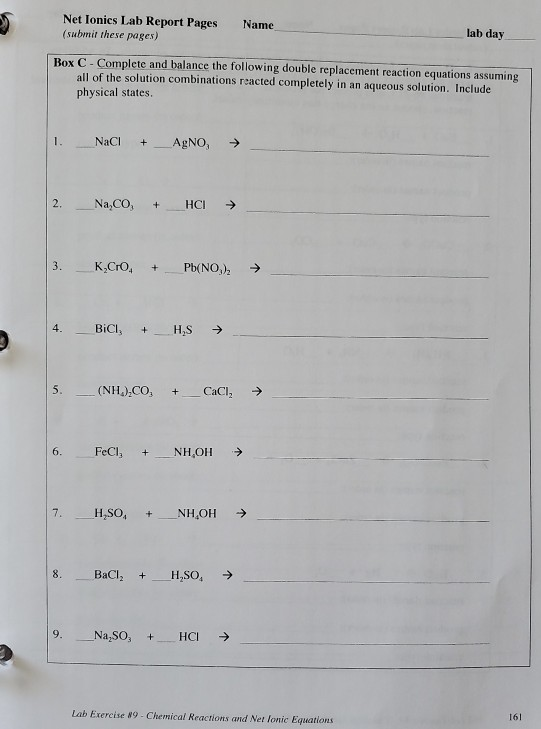 Net Ionics Lab Report Pages Name____ lab day____
(submit these pages)
Box C - Complete and balance the following double replacement reaction equations assuming
all of the solution combinations reacted completely in an aqueous solution. Include
physical states.
1. __NaCl + __AgNO₃ → ____
2. __Na₂CO₃ + __HCl → ____
3. __K₂CrO₄ + __Pb(NO₃)₂ → ____
4. __BiCl₃ + __H₂S → ____
5. __(NH₄)₂CO₃ + __CaCl₂ → ____
6. __FeCl₃ + __NH₄OH → ____
7. __H₂SO₄ + __NH₄OH → ____
8. __BaCl₂ + __H₂SO₄ → ____
9. __Na₂SO₃ + __HCl → ____
Lab Exercise #9 - Chemical Reactions and Net Ionic Equations 161